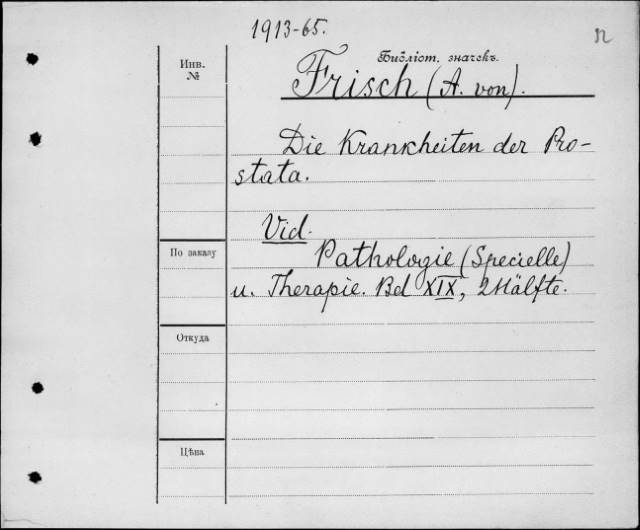 1913-65.
Библіот. значекъ.
Инв.
№
Frisch (A. von).
Die Krankheiten der Pro-
stata.
Vid.
По заказу
Pathologie (Specielle)
u. Therapie. Bd XIX, 2 Hälfte.
Откуда
Цѣна